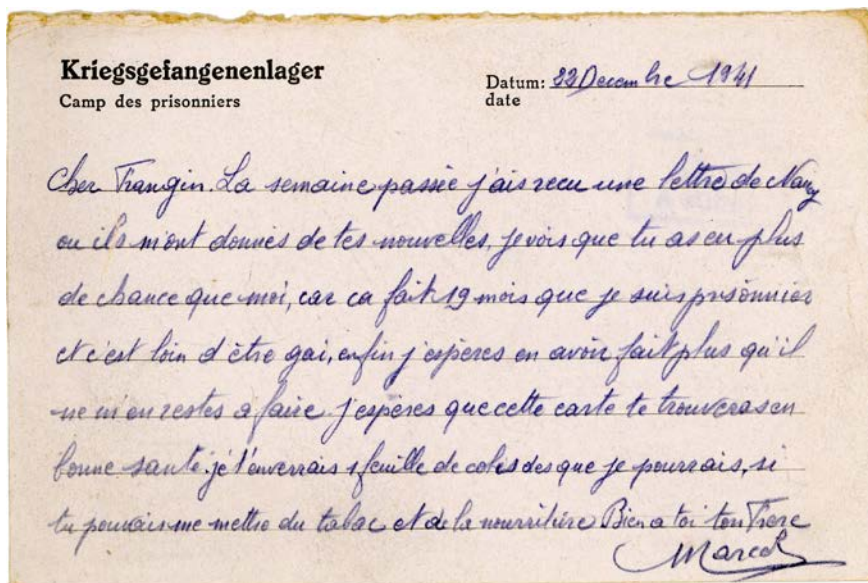 Kriegsgefangenenlager
Camp des prisonniers
Datum: 22 Decembre 1941
date
Cher Frangin. La semaine passée j'ais recu une lettre de Nancy
ou ils m'ont donnés de tes nouvelles, je vois que tu as eu plus
de chance que moi, car ca fait 19 mois que je suis prisonnier
et c'est loin d'être gai, enfin j'espères en avoir fait plus qu'il
ne m'en restes a faire. j'espères que cette carte te trouveras en
bonne santé. je t'enverrais 1 feuille de colis des que je pourrais, si
tu pouvais me mettre du tabac et de la nourriture Bien a toi ton Frere
Marcel